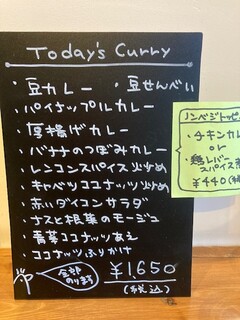 Today's Curry
・豆カレー ・豆せんべい
・パイナップルカレー
・厚揚げカレー
・バナナのつぼみカレー
・レンコンスパイス炒め
・キャベツココナッツ炒め
・赤いダイコンサラダ
・ナスと根菜のモージュ
・青菜ココナッツあえ
・ココナッツふりかけ
全部のります
¥1,650
(税込)
ノンベジトッピ
・チキンカレ
or
・鶏レバー
スパイス
¥440(税